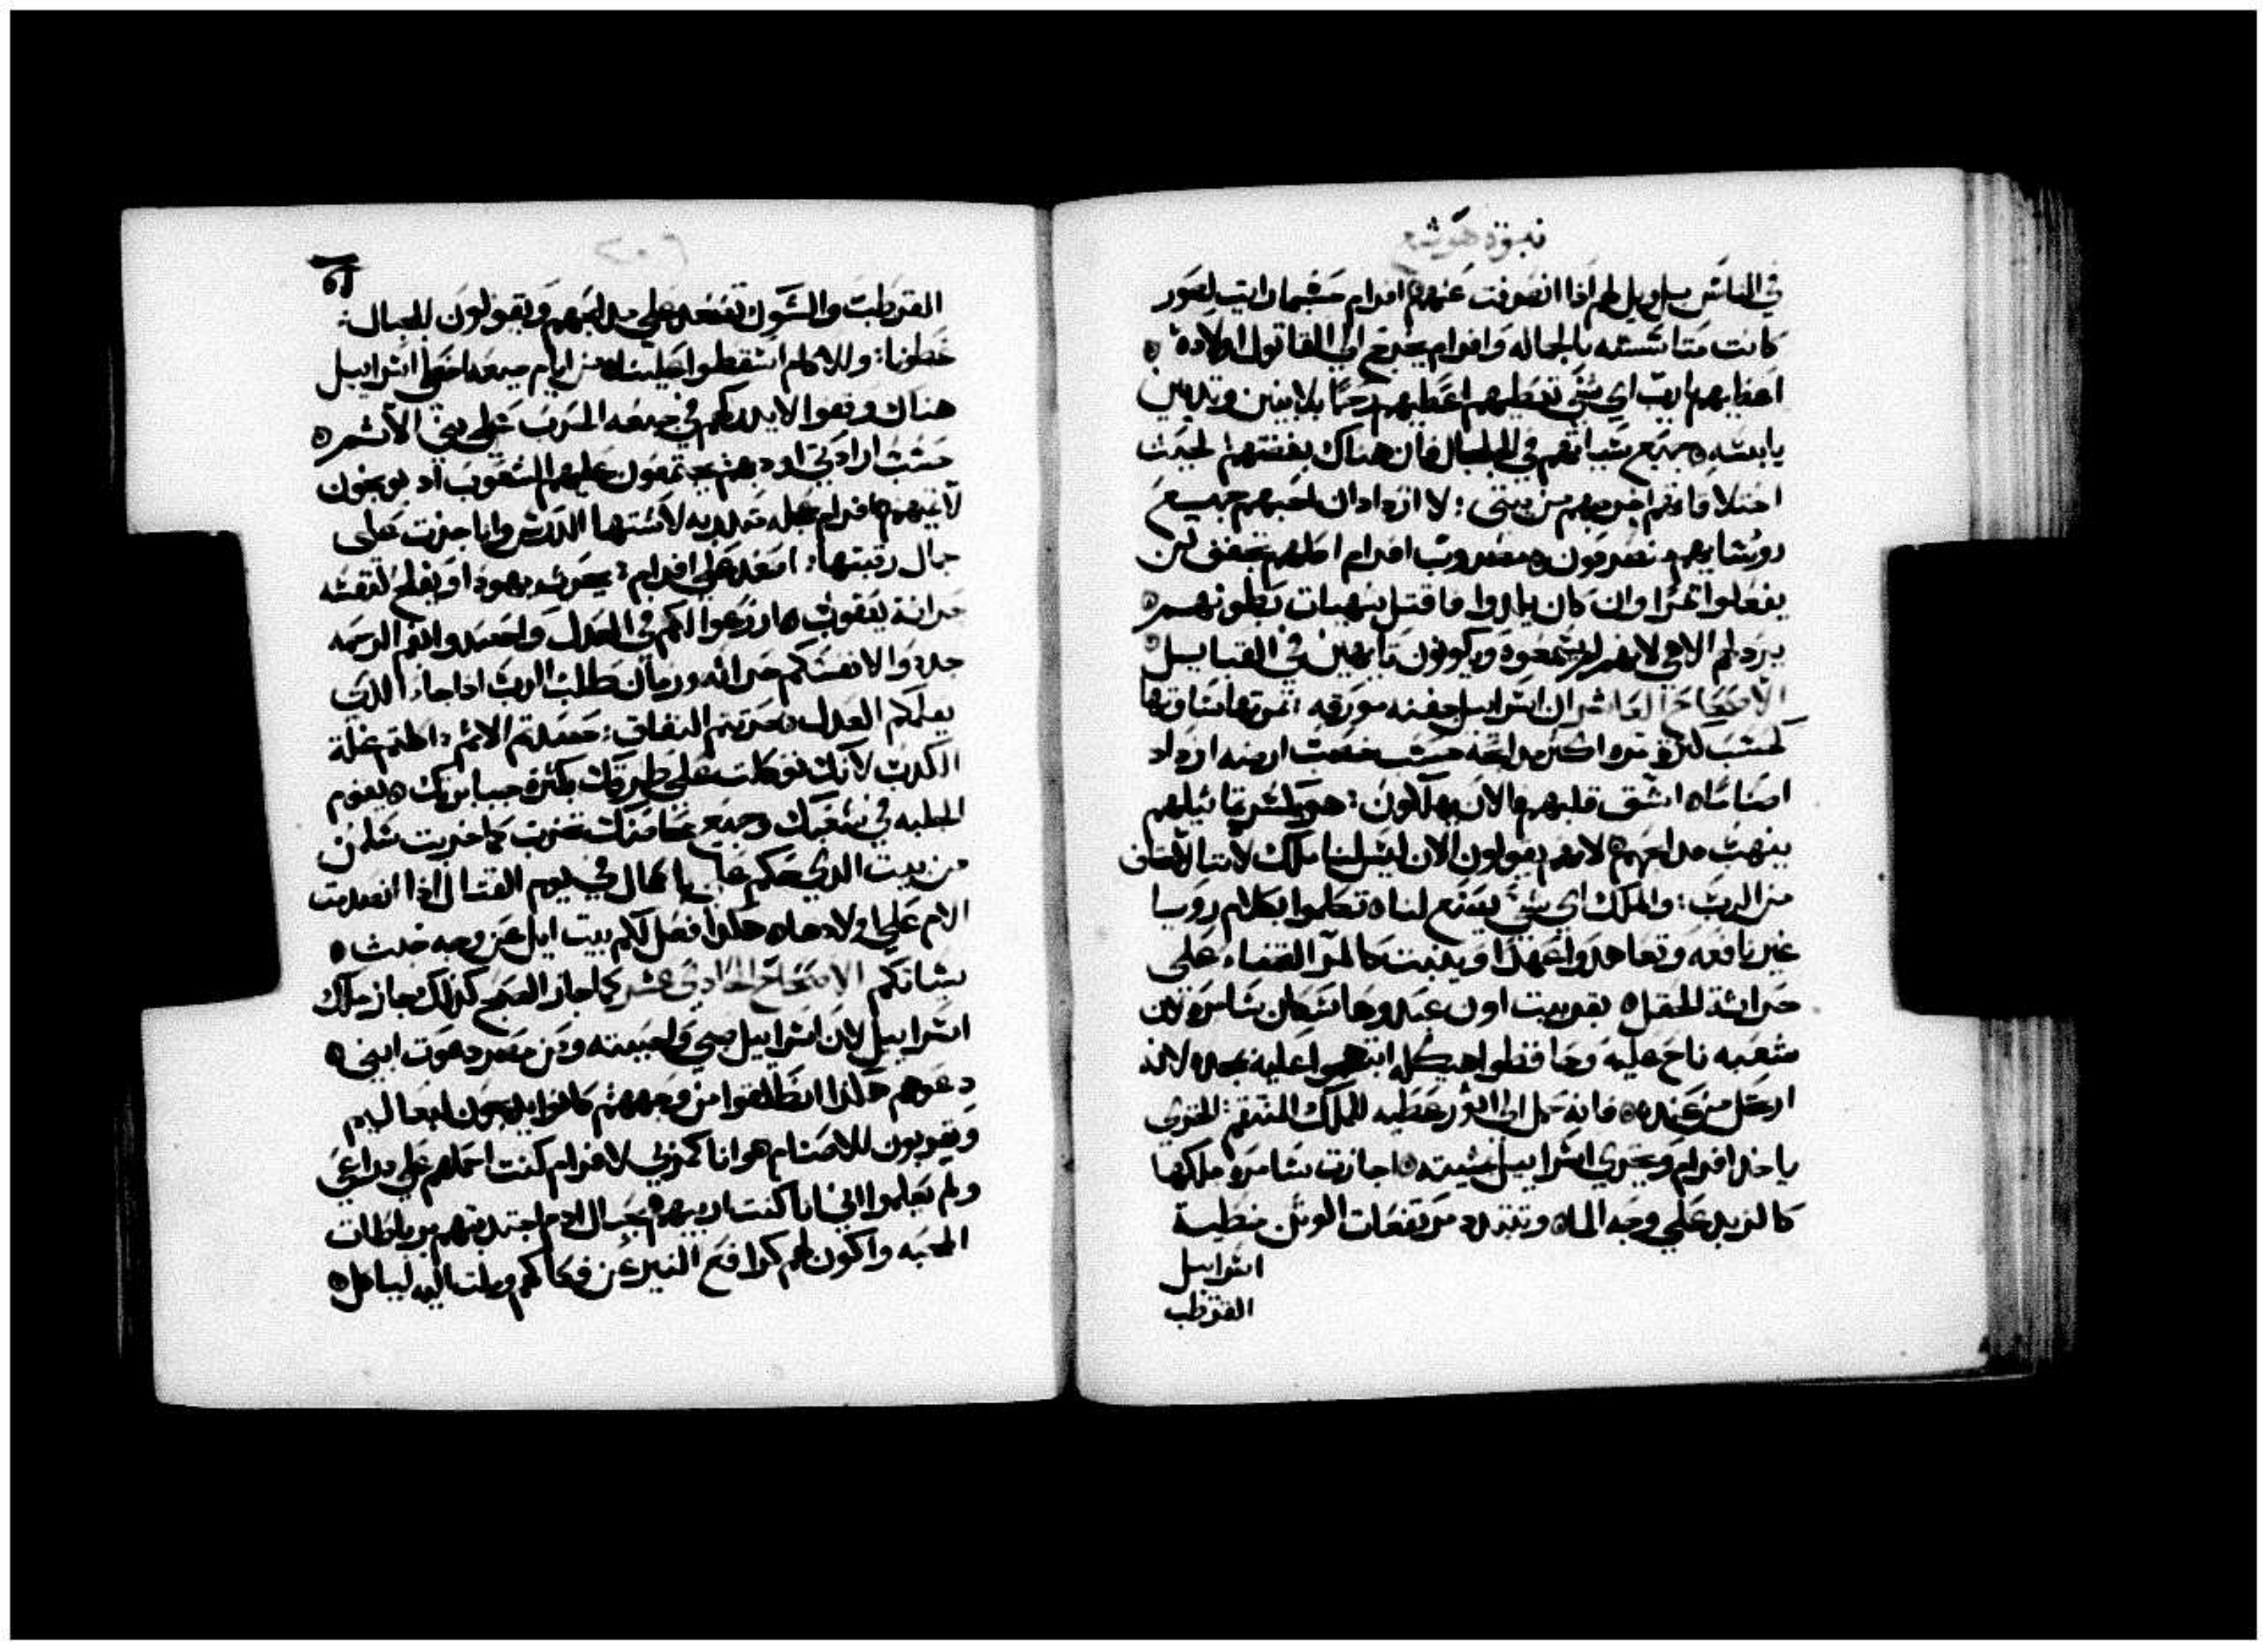 نبوة هوشع
في الناس بل ويل لهم اذا انصرفت عنهم افرام حسبما رايت لصور
كانت متاسسه بالجماله وافرام يخرج الي القاتول اولاده
اعطيهم يارب اي شي تعطيهم اعطيهم رحمًا بلا بنين وتديين
يابسه جميع شياتهم في الجلجال فان هناك بغضتهم لخبث
اختلاقاتهم اخرجهم من بيتي لا ازداد ان احبهم جميع
روسايهم منصرفون مضروب افرام اصلهم تجفف لن
يفعلوا ثمرًا وان كان يلدوا فاقتل شهيات بطونهم
يرذلهم الاهي لانهم لم يسمعوه ويكونون تايهين في القبايل
الاصحاح العاشر ان اسراييل جفنه مورقه ثمرتها متساويها
كحسب كثرة ثمره اكثر مدابحه حسب خصب ارضه ازداد
اصناما انشق قلبهم والان يهلكون هو يكسر تماثيلهم
ينهب مدابحهم لانهم يقولون الان ليس لنا ملك لاننا لا نخاف
من الرب والملك اي شي يصنع لنا تكلموا بكلام رويا
غير نافعه وتعاهدوا عهدًا وينبت كالمر القضاء علي
حراثة الحقل بقر بيت اون عبدوها سكان سامره لان
شعبه ناح عليه وحافظوا هيكله ابتهجوا عليه بمجده لانه
ارتحل من عنده فانه حمل الي اثور عطيه للملك المنتقم الخزي
ياخذ افرام ويخزي اسراييل بمشيته اجازت سامره ملكها
كالزبد علي وجه الماء وتتبدد مرتفعات الوثن خطية
اسراييل
القرطب
القرطب والشوك تصعد علي مدابحهم ويقولون للجبال
غطونا وللاكام اسقطوا علينا من ايام جبعه اخطا اسراييل
هناك وقفوا لا يدركهم في جبعه الحرب علي بني الاثم
حسب ارادتي اودبهم يجتمعون عليهم الشعوب اذ يوبخون
لاثميهم افرام عجله متدربه لاستها الدرس وانا جزت علي
جمال رقبتها اصعد علي افرام يحرث يهودا ويفلح لنفسه
حراثة يعقوب ازرعوا لكم في العدل واحصدوا بفم الرحمه
جددوا لانفسكم حراثه وزمان طلب الرب اذا جاء الذي
يعلمكم العدل حرثتم النفاق حصدتم الاثم اكلتم غلة
الكذب لانك توكلت علي طرقك بكثرة جبابرتك يقوم
الجلبه في شعبك وجميع محاصنك تخرب كما خربت شلمن
من بيت الذي حكم علي باعال في يوم القتال اذا انصدمت
الام علي اولادها هكذا فعل لكم بيت ايل عن وجه خبث
سيانكم الاصحاح الحادي عشر كما جاز الصبح كذلك جاز ملك
اسراييل لان اسراييل صبي واحببته ومن مصر دعوت ابني
دعوهم هكذا انطلقوا من وجههم كانوا يدبحون لبعاليم
ويقربون للاصنام هو انا كمربي لافرام كنت احملهم علي دراعي
ولم يعلموا اني انا كنت اربيهم بحبال ادم اجتدبتهم برباطات
المحبه واكون لهم كرافع النير عن فكاكهم وملت اليه لياكل